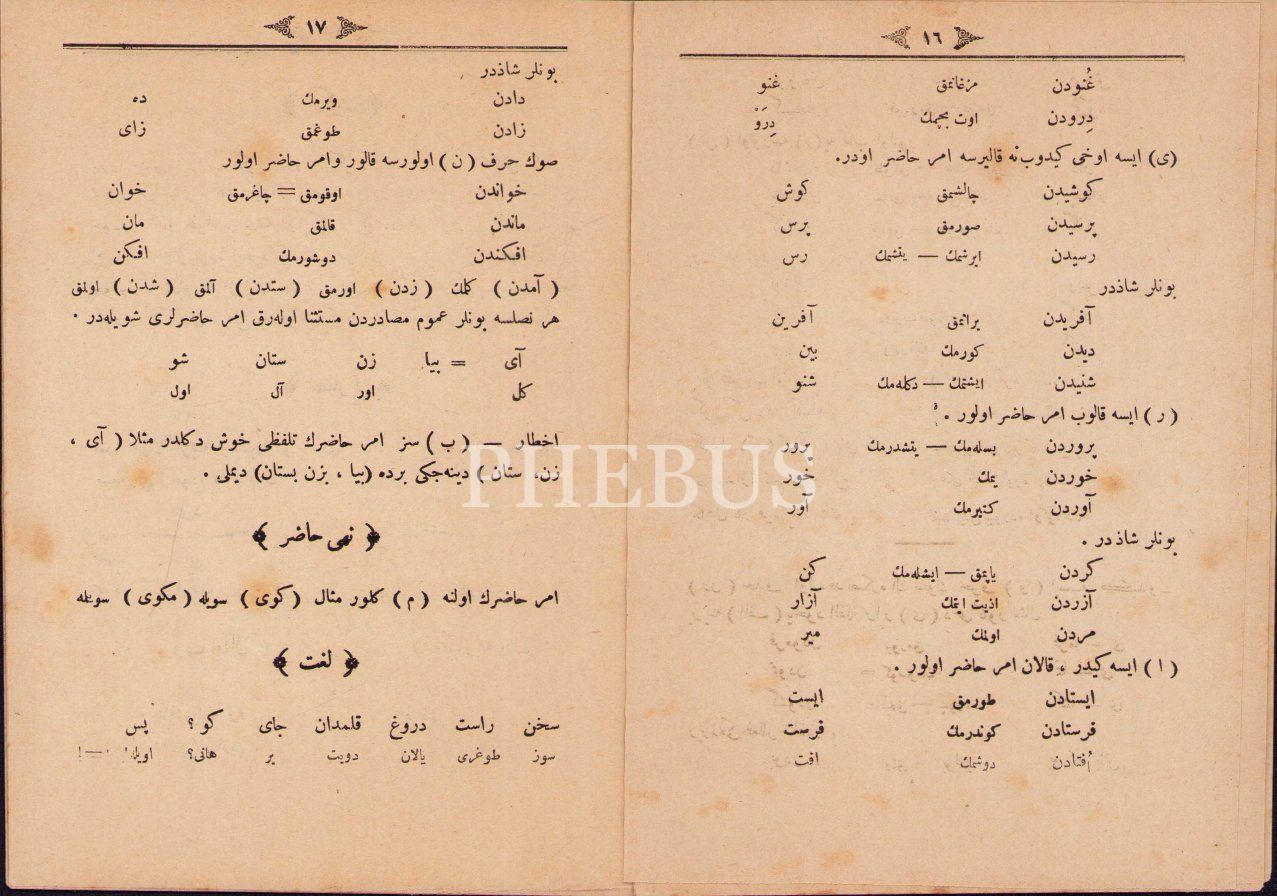 ١٦
غُنودن مزغانمق غنو
دِرودن اوت بچمك دِرَوْ
(ى) ايسه اوخى كيدوب نه قاليرسه امر حاضر اودر.
كوشيدن چالشمق كوش
پرسيدن صورمق پرس
رسيدن ايرشمك — يتشمك رس
بونلر شاذدر
آفريدن يراتمق آفرين
ديدن كورمك بين
شنيدن ايشتمك — دكله‌مك شنو
(ر) ايسه قالوب امر حاضر اولور.
پروردن بسله‌مك — يتشدرمك پرور
خوردن يمك خور
آوردن كتيرمك آور
بونلر شاذدر.
كردن ياپمق — ايشله‌مك كن
آزردن اذيت ايتمك آزار
مردن اولمك مير
(ا) ايسه كيدر، قالان امر حاضر اولور.
ايستادن طورمق ايست
فرستادن كوندرمك فرست
اُفتادن دوشمك افت
١٧
بونلر شاذدر
دادن ويرمك ده
زادن طوغمق زاى
صوك حرف (ن) اولورسه قالور وامر حاضر اولور
خواندن اوقومق = چاغرمق خوان
ماندن قالمق مان
افكندن دوشورمك افكن
(آمدن) كلمك (زدن) اورمق (ستدن) آلمق (شدن) اولمق
هر نصلسه بونلر عموم مصادردن مستثنا اوله‌رق امر حاضرلرى شويله‌در.
آى = بيا زن ستان شو
كل اور آل اول
اخطار — (ب) سز امر حاضرك تلفظى خوش دكلدر مثلا (آى،
زن، ستان) دينه‌جكى يرده (بيا، بزن بستان) ديملى.
﴿ نهى حاضر ﴾
امر حاضرك اولنه (م) كلور مثال (كوى) سويله (مكوى) سويلمه
﴿ لغت ﴾
سخن راست دروغ قلمدان جاى كو؟ پس
سوز طوغرى يالان دويت ير هانى؟ اويله
PHEBUS